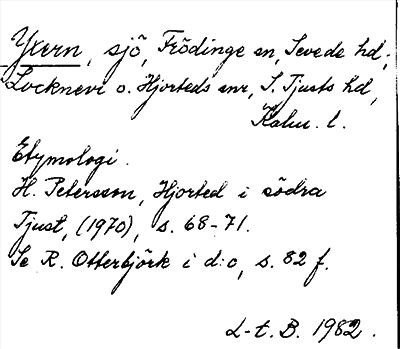 Yxern, sjö, Frödinge sn, Sevede hd;
Locknevi o. Hjorteds snr, S. Tjusts hd,
Kalm. l.
Etymologi.
H. Petersson, Hjorted i södra
Tjust, (1970), s. 68-71.
Se R. Otterbjörk i d:o, s. 82 f.
L-t. B. 1982.